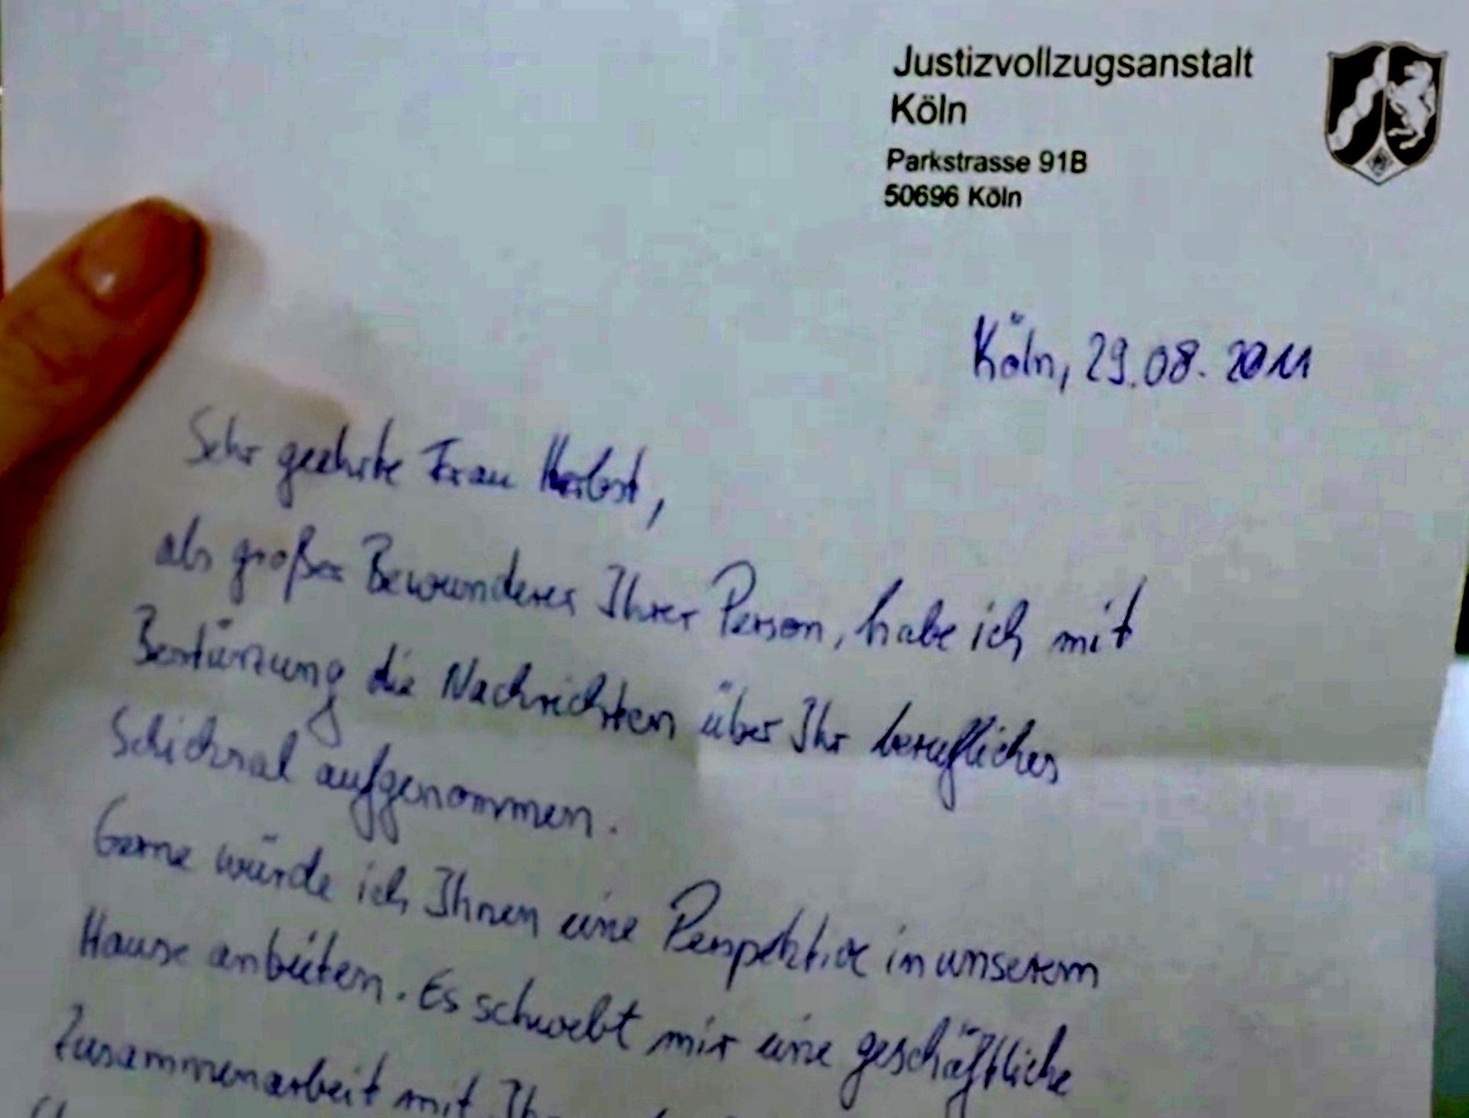 Justizvollzugsanstalt
Köln
Parkstrasse 91B
50696 Köln
Köln, 29.08.2011
Sehr geehrte Frau Herbst,
als großer Bewunderer Ihrer Person, habe ich mit
Bestürzung die Nachrichten über Ihr berufliches
Schicksal aufgenommen.
Gerne würde ich Ihnen eine Perspektive in unserem
Hause anbieten. Es schwebt mir eine geschäftliche
Zusammenarbeit mit